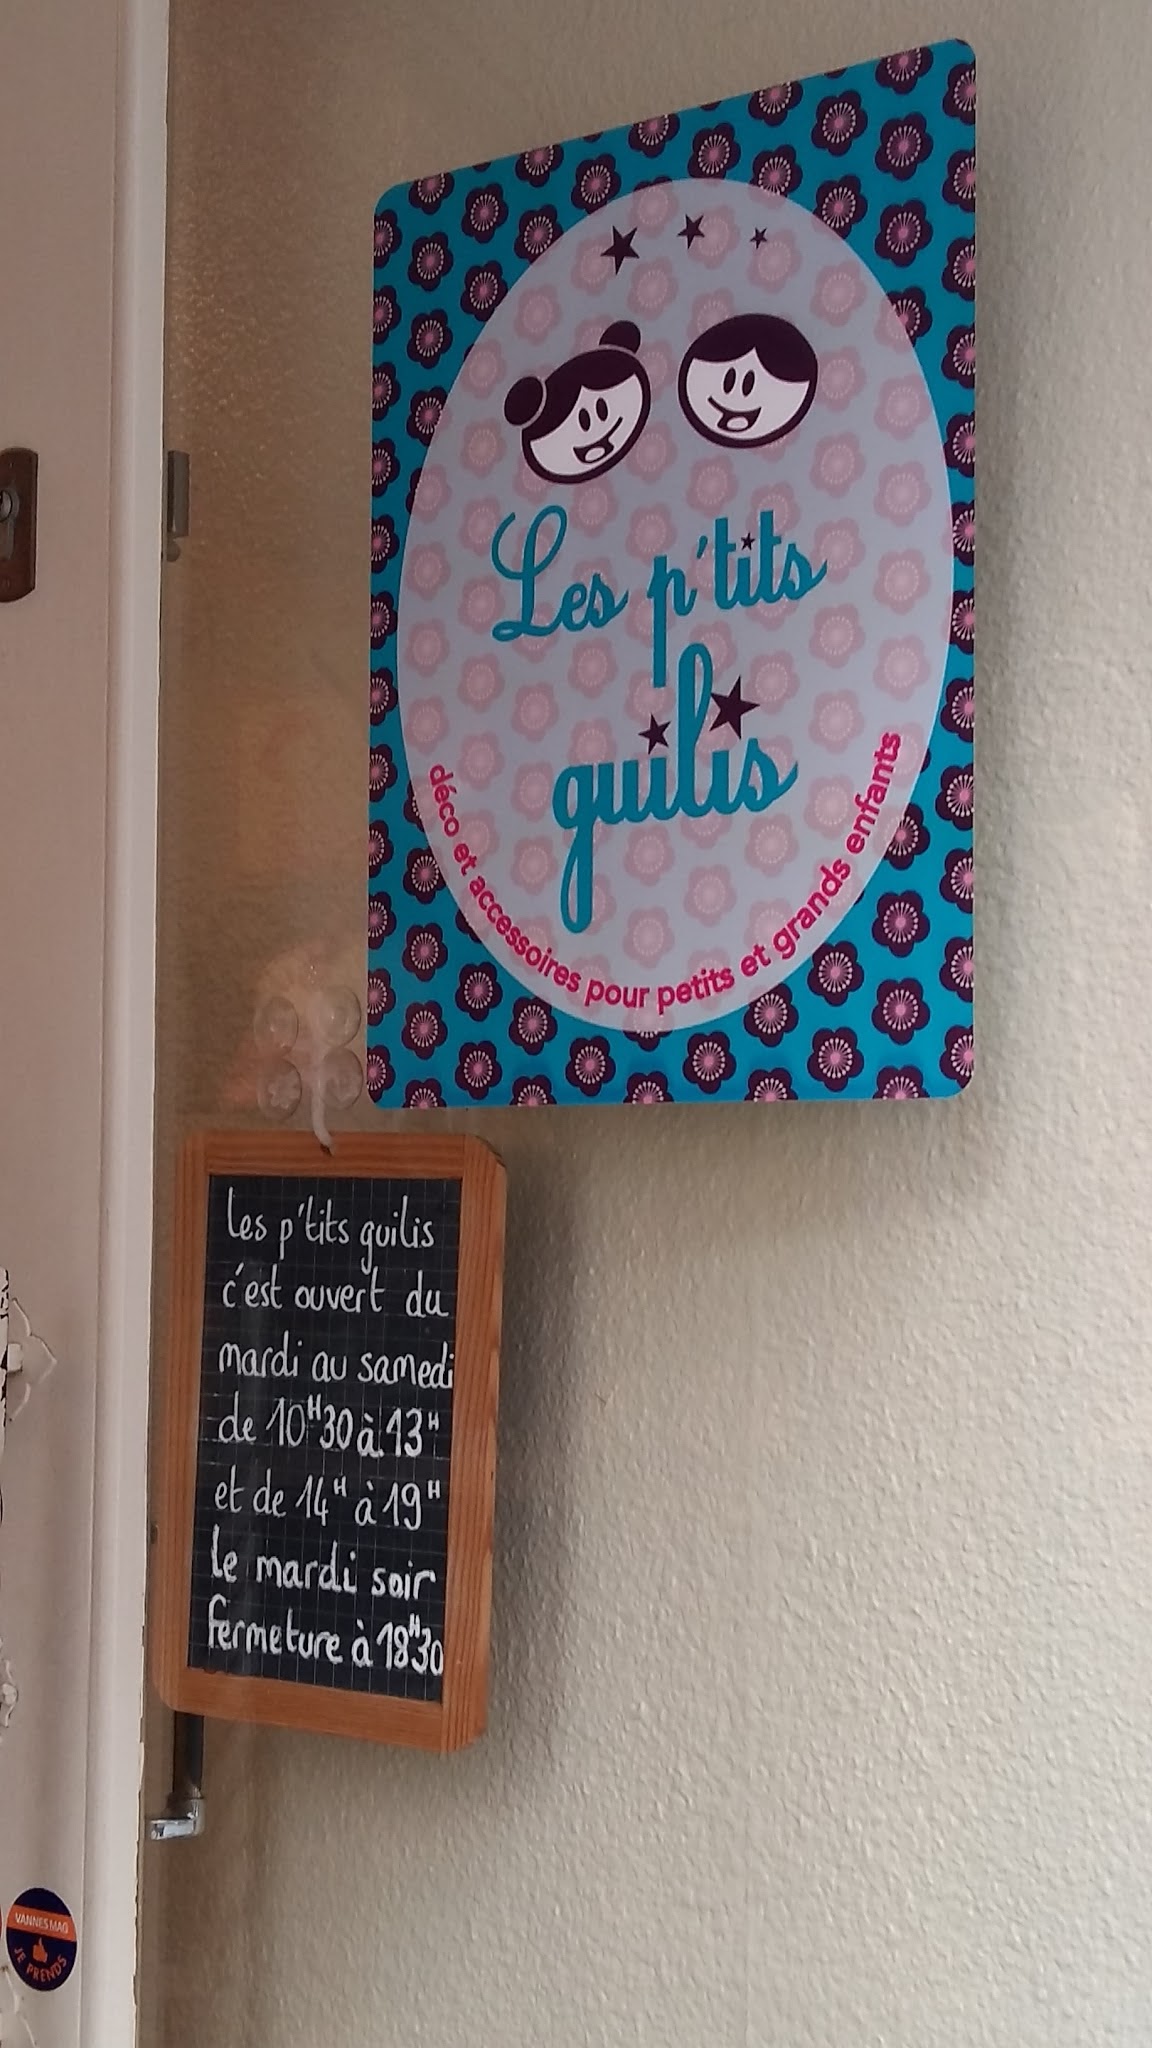 Les p'tits
guilis
déco et accessoires pour petits et grands enfants
les p'tits guilis
c'est ouvert du
mardi au samedi
de 10H30 à 13H
et de 14H à 19H
le mardi soir
fermeture à 18H30
VANNES MAG
JE PRENDS